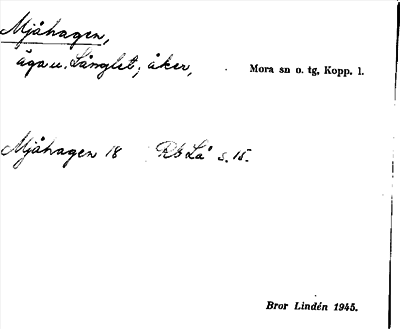 Mjåhagen,
äga u. Långlet; åker, Mora sn o. tg, Kopp. l.
Mjåhagen 18 Rb Lå s. 15.
Bror Lindén 1945.